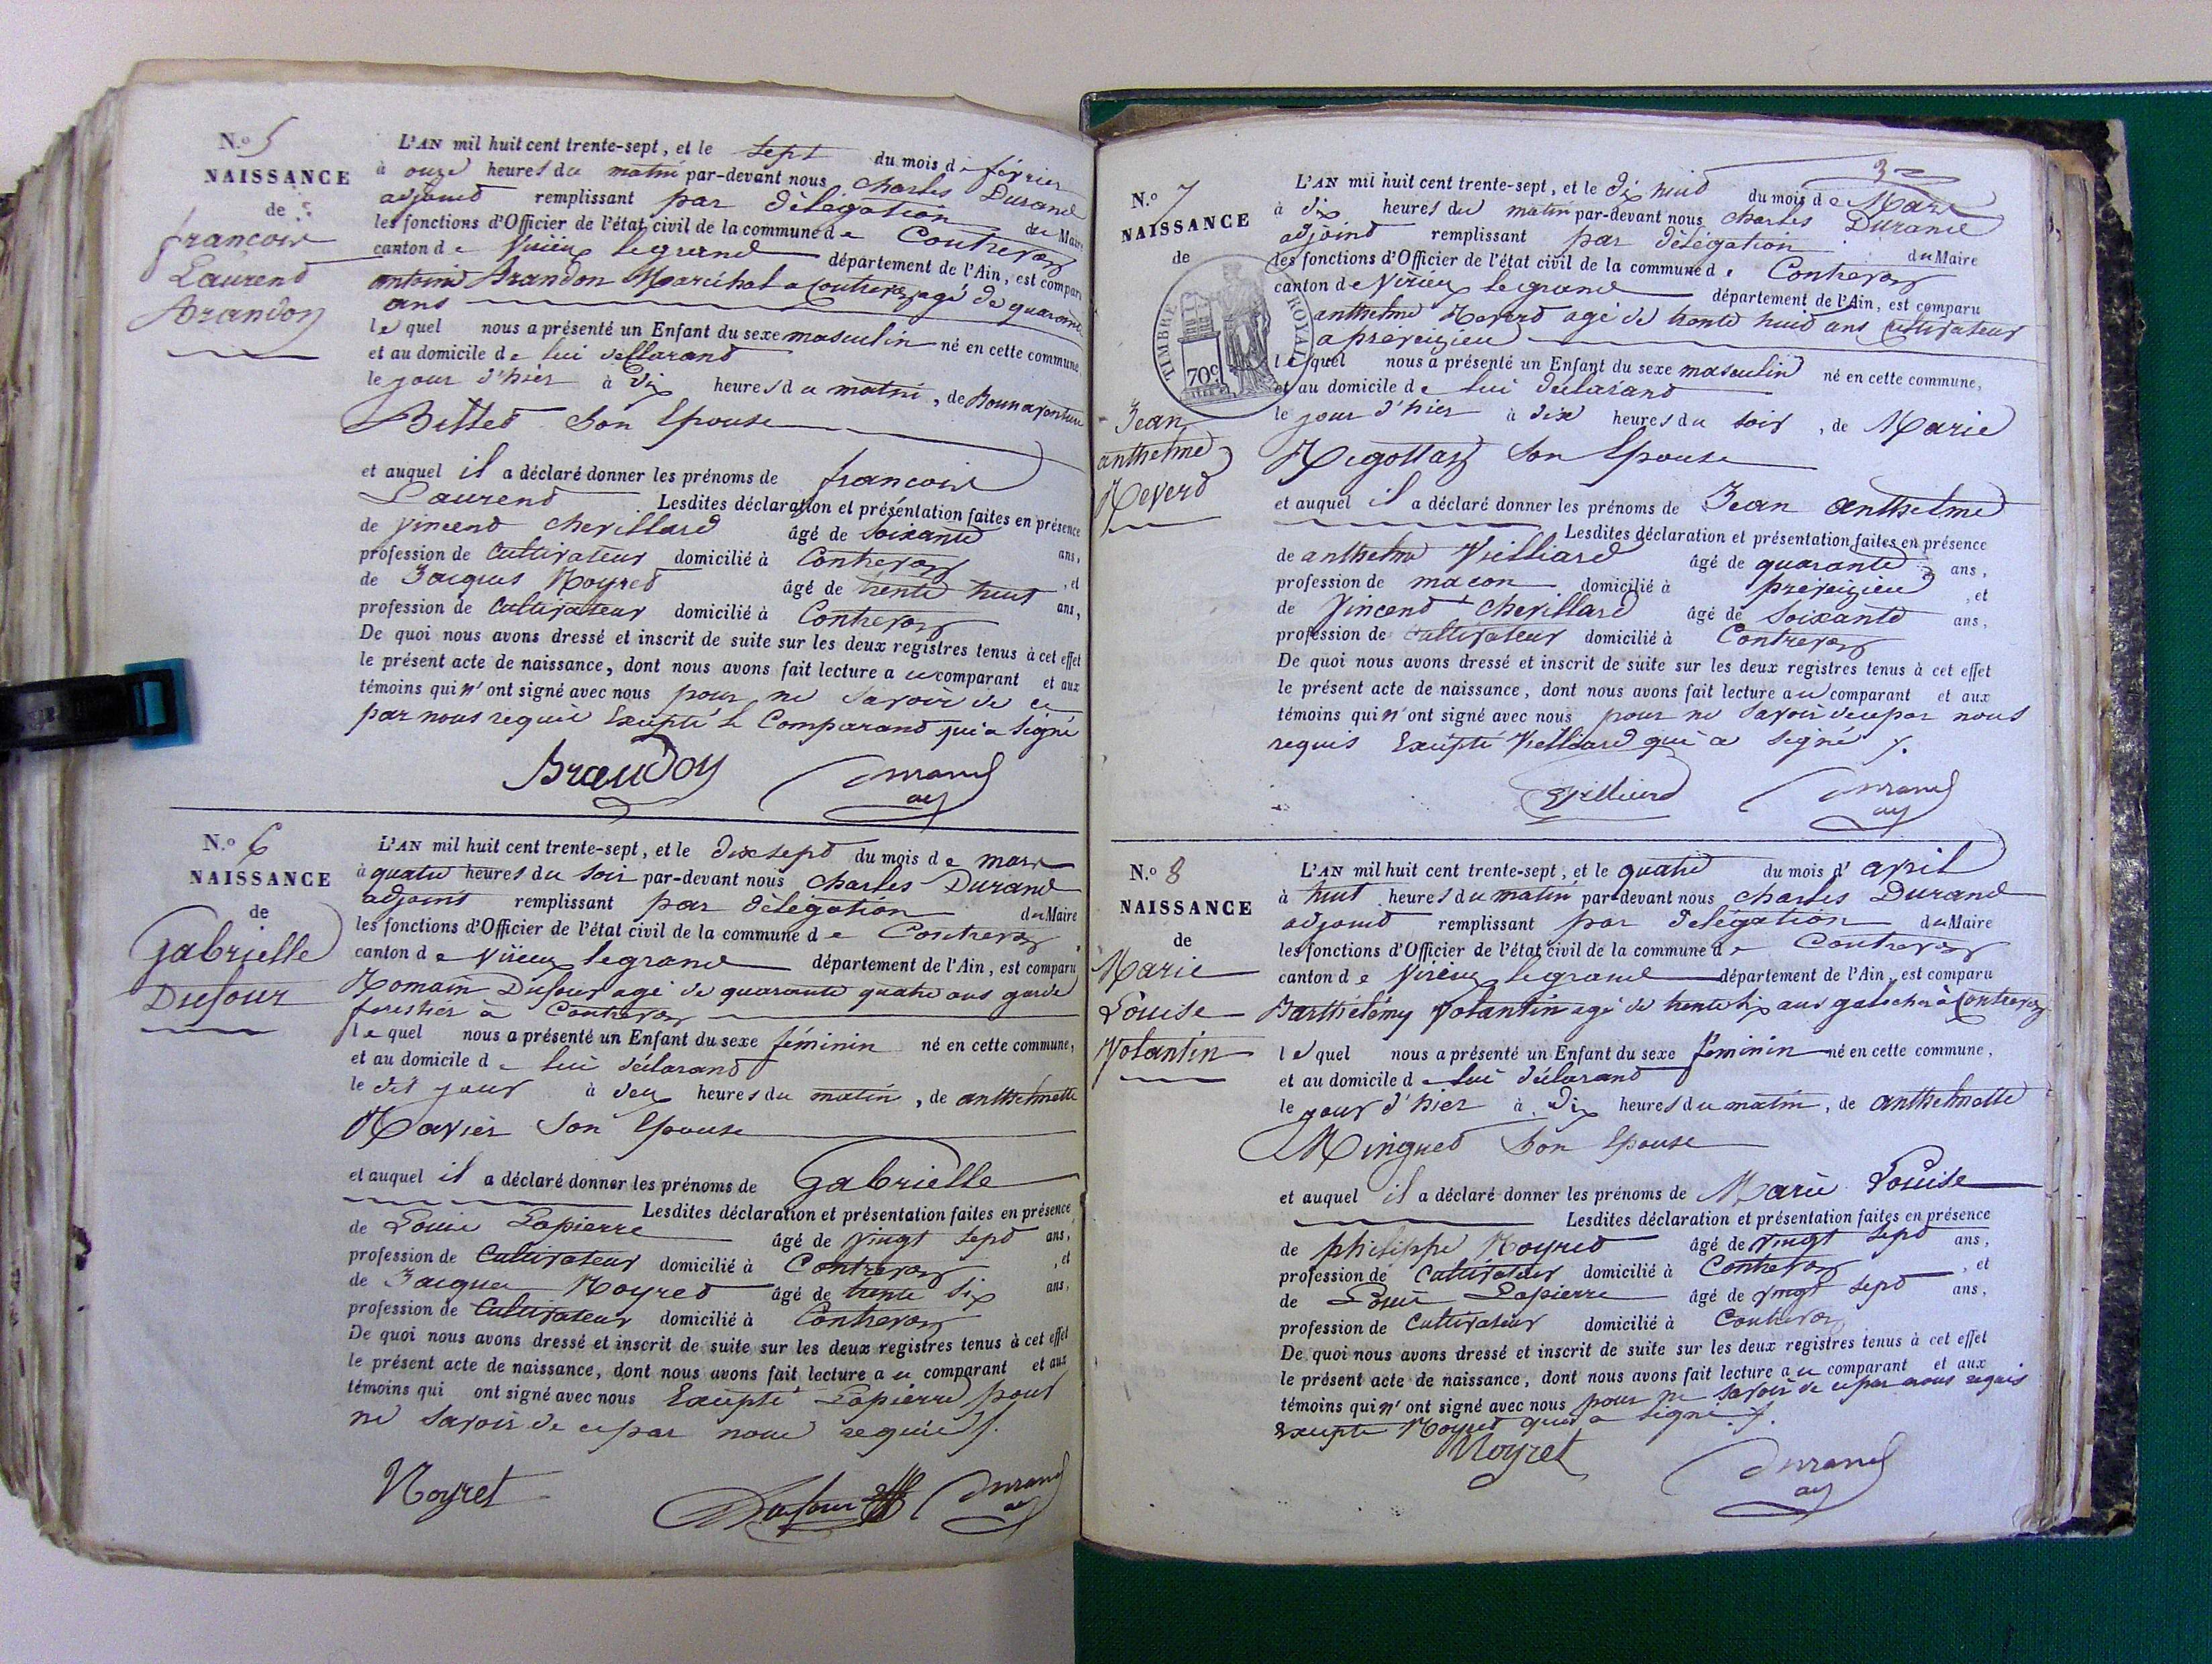 N.o 5
NAISSANCE
de
francois
Laurend
Brandon
L'AN mil huit cent trente-sept, et le sept du mois de février
à onze heures du matin par-devant nous charles Durand
adjoind remplissant par délégation du Maire
les fonctions d'Officier de l'état civil de la commune de Contrevoz
canton de Virieu legrand département de l'Ain, est comparu
antoine Brandon Maréchal a Contrevoz agé de quarante
ans
lequel nous a présenté un Enfant du sexe masculin né en cette commune,
et au domicile de lui déclarand
le jour d'hier à dix heures du matin, de Bounaventure
Bitted Son Epouse
et auquel il a déclaré donner les prénoms de francois
Laurend Lesdites déclaration et présentation faites en présence
de vincend chevillard âgé de soixante ans,
profession de Cultivateur domicilié à Contrevoz , et
de Jacques Noyred âgé de trente huit ans,
profession de Cultivateur domicilié à Contrevoz
De quoi nous avons dressé et inscrit de suite sur les deux registres tenus à cet effet
le présent acte de naissance, dont nous avons fait lecture au comparant et aux
témoins qui n'ont signé avec nous pour ne savoir de ce
par nous requis Excepté le Comparand qui a signé
Brandon Durand
adj
N.o 6
NAISSANCE
de
Gabrielle
Dufour
L'AN mil huit cent trente-sept, et le dix sept du mois de mars
à quatre heures du soir par-devant nous charles Durand
adjoint remplissant par délégation du Maire
les fonctions d'Officier de l'état civil de la commune de Contrevoz
canton de Virieu legrand département de l'Ain, est comparu
Romain Dufour agé de quarante quatre ans garde
forestier à Contrevoz
lequel nous a présenté un Enfant du sexe féminin né en cette commune,
et au domicile de lui déclarand
le dit jour à deux heures du matin, de anthelmette
Ravier Son Epouse
et auquel il a déclaré donner les prénoms de Gabrielle
Lesdites déclaration et présentation faites en présence
de Louis Lapierre âgé de vingt sept ans,
profession de Cultivateur domicilié à Contrevoz , et
de Jacques Noyred âgé de trente six ans,
profession de Cultivateur domicilié à Contrevoz
De quoi nous avons dressé et inscrit de suite sur les deux registres tenus à cet effet
le présent acte de naissance, dont nous avons fait lecture au comparant et aux
témoins qui ont signé avec nous Excepté Lapierre pour
ne savoir de ce par nous requis ./.
Noyret Dufour Durand
adj
3
N.o 7
NAISSANCE
de
TIMBRE ROYAL
70c
Jean
anthelme
Reverd
L'AN mil huit cent trente-sept, et le dix huid du mois de Mars
à dix heures du matin par-devant nous charles Durand
adjoind remplissant par délégation du Maire
les fonctions d'Officier de l'état civil de la commune de Contrevoz
canton de Virieu legrand département de l'Ain, est comparu
anthelme Reverd agé de trente huid ans cultivateur
a preveizieu
lequel nous a présenté un Enfant du sexe masculin né en cette commune,
et au domicile de lui déclarand
le jour d'hier à dix heures du soir, de Marie
Megottaz Son Epouse
et auquel il a déclaré donner les prénoms de Jean anthelme
Lesdites déclaration et présentation faites en présence
de anthelme Vielliard âgé de quarante ans,
profession de macon domicilié à preveizieu , et
de Vincend chevillard âgé de soixante ans,
profession de cultivateur domicilié à Contrevoz
De quoi nous avons dressé et inscrit de suite sur les deux registres tenus à cet effet
le présent acte de naissance, dont nous avons fait lecture au comparant et aux
témoins qui n'ont signé avec nous pour ne savoir de ce par nous
requis Excepté Vielliard qui a signé ./.
Durand
adj
N.o 8
NAISSANCE
de
Marie
Louise
Volantin
L'AN mil huit cent trente-sept, et le quatre du mois d'avril
à huit heures du matin par-devant nous charles Durand
adjoind remplissant par délégation du Maire
les fonctions d'Officier de l'état civil de la commune de Contrevoz
canton de Virieu legrand département de l'Ain, est comparu
Barthélémy Volantin agé de trente six ans galocher à Contrevoz
lequel nous a présenté un Enfant du sexe féminin né en cette commune,
et au domicile de lui déclarand
le jour d'hier à dix heures du matin, de anthelmette
Mingued Son Epouse
et auquel il a déclaré donner les prénoms de Marie Louise
Lesdites déclaration et présentation faites en présence
de philippe Noyred âgé de vingt sept ans,
profession de Cultivateur domicilié à Contrevoz , et
de Louis Lapierre âgé de vingt sept ans,
profession de Cultivateur domicilié à Contrevoz
De quoi nous avons dressé et inscrit de suite sur les deux registres tenus à cet effet
le présent acte de naissance, dont nous avons fait lecture au comparant et aux
témoins qui n'ont signé avec nous pour ne savoir de ce par nous requis
Excepté Noyred qui a signé ./.
Noyret Durand
adj